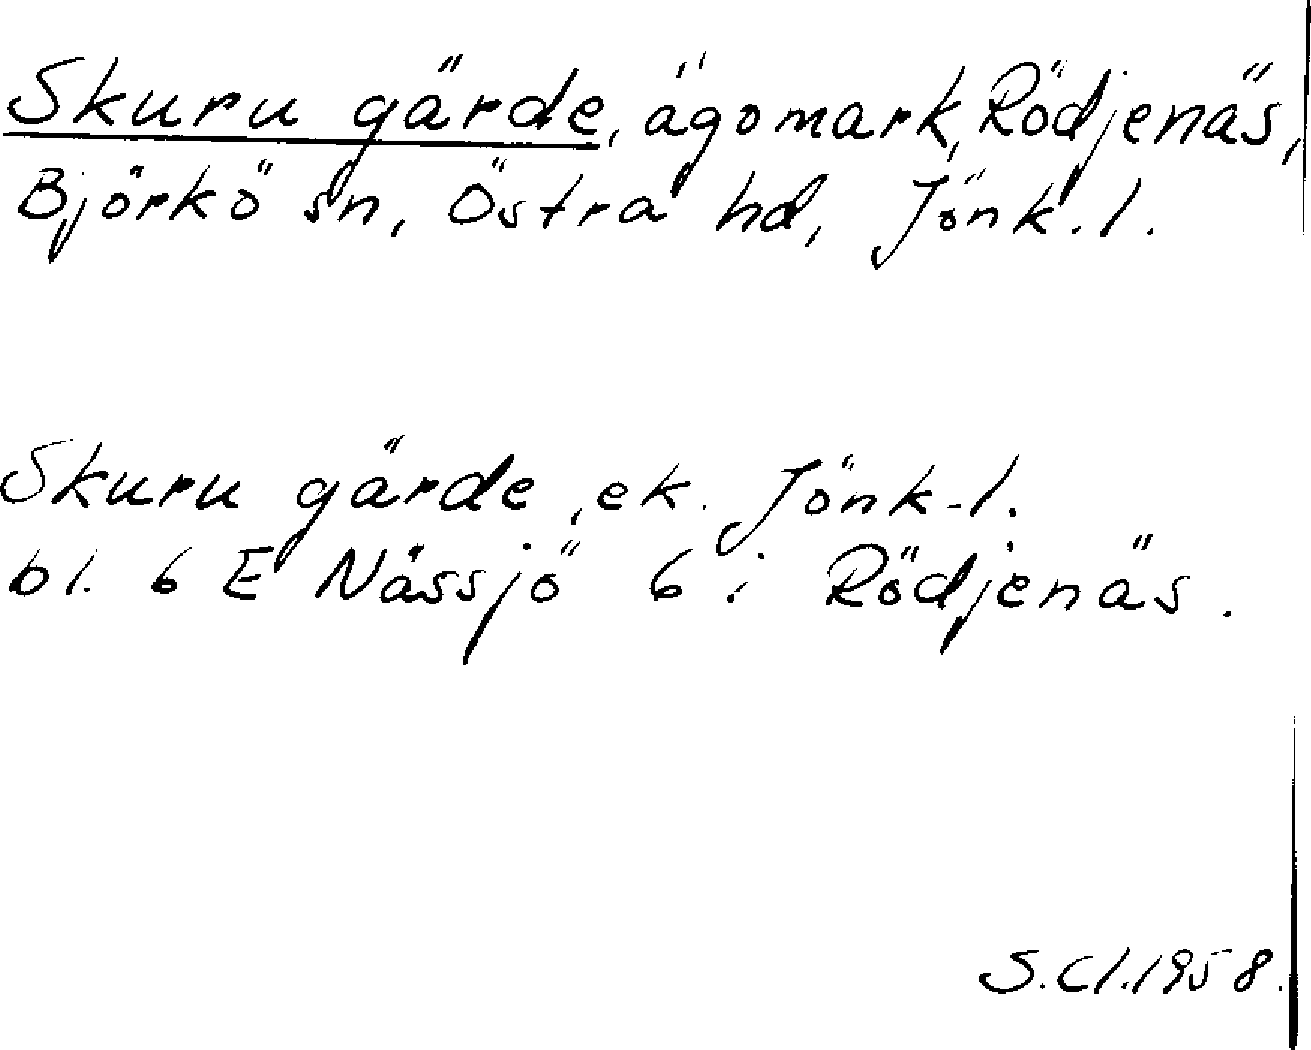 Skuru gärde, ägomark, Rödjenäs,
Björkö sn, Östra hd, Jönk. l.
Skuru gärde, ek. Jönk-l.
bl. 6 E Nässjö 6 i Rödjenäs.
S. Cl. 1958.